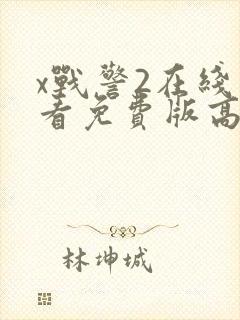 x戰警2在綫
看免費版高
林坤城